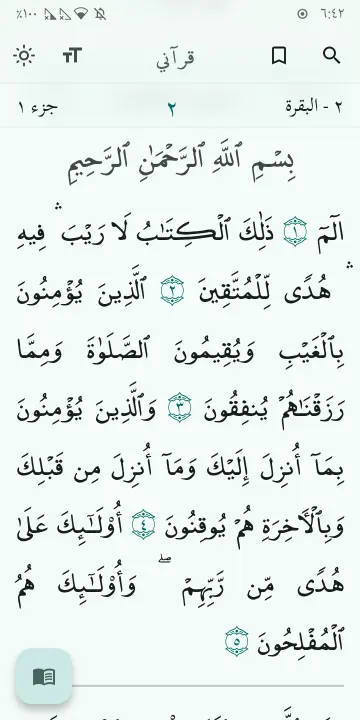 ٦:٤٢ ٪١٠٠
قرآني
٢ - البقرة ٢ جزء ١
بِسْمِ ٱللَّهِ ٱلرَّحْمَٰنِ ٱلرَّحِيمِ
الٓمٓ ١ ذَٰلِكَ ٱلْكِتَٰبُ لَا رَيْبَ ۛ فِيهِ
ۛ هُدًى لِّلْمُتَّقِينَ ٢ ٱلَّذِينَ يُؤْمِنُونَ
بِٱلْغَيْبِ وَيُقِيمُونَ ٱلصَّلَوٰةَ وَمِمَّا
رَزَقْنَٰهُمْ يُنفِقُونَ ٣ وَٱلَّذِينَ يُؤْمِنُونَ
بِمَآ أُنزِلَ إِلَيْكَ وَمَآ أُنزِلَ مِن قَبْلِكَ
وَبِٱلْءَاخِرَةِ هُمْ يُوقِنُونَ ٤ أُو۟لَٰٓئِكَ عَلَىٰ
هُدًى مِّن رَّبِّهِمْ ۖ وَأُو۟لَٰٓئِكَ هُمُ
ٱلْمُفْلِحُونَ ٥